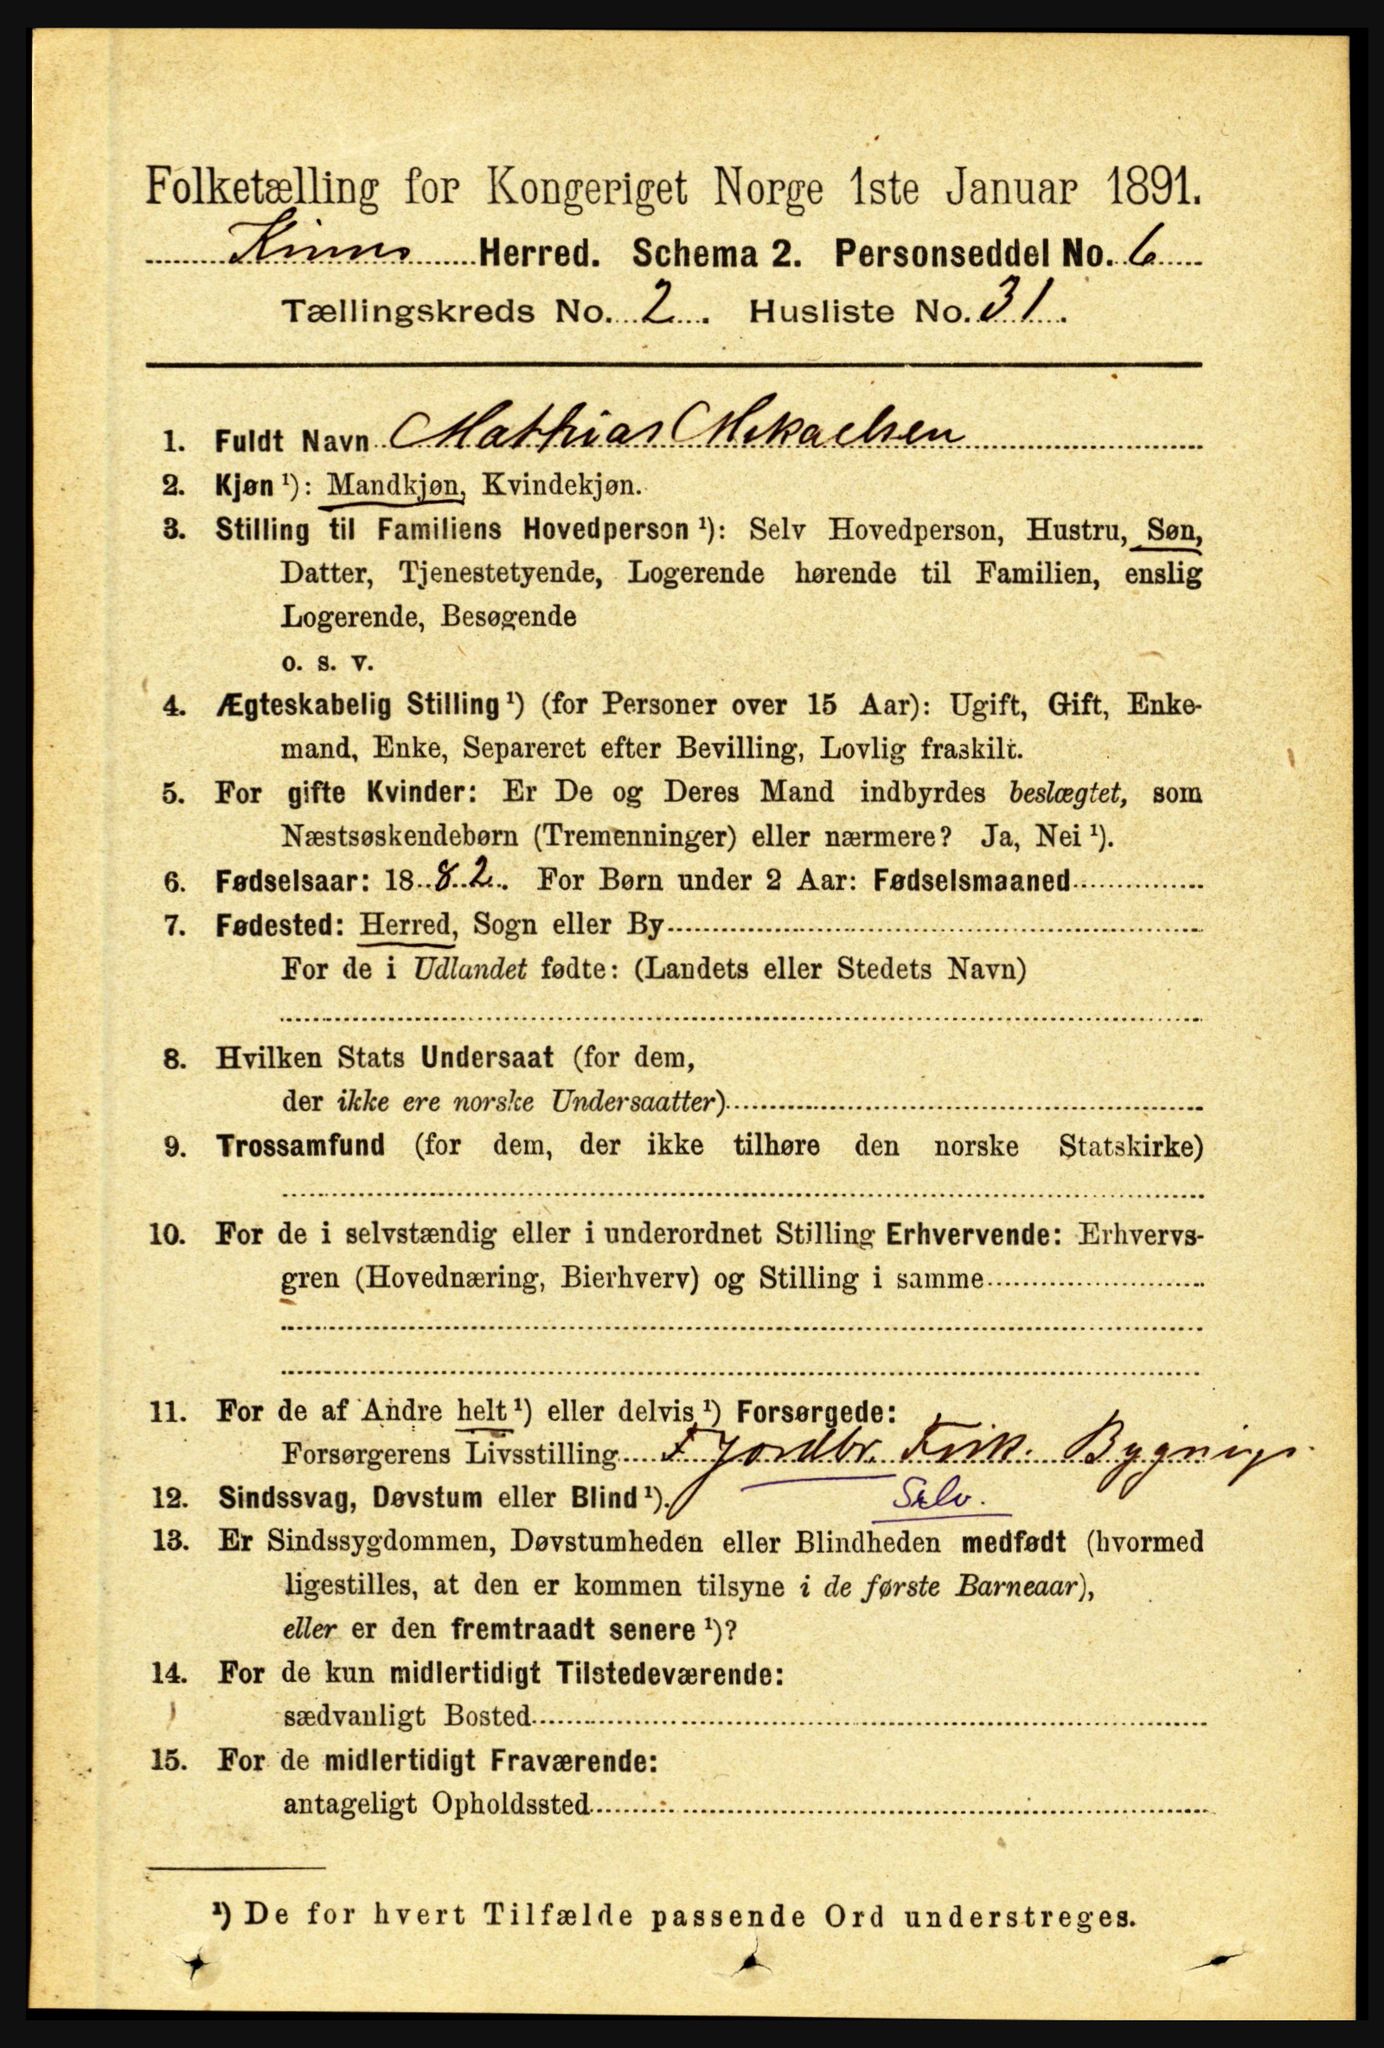 Folketælling for Kongeriget Norge 1ste Januar 1891.
Kinns Herred. Schema 2. Personseddel No. 6
Tællingskreds No. 2. Husliste No. 31.
1. Fuldt Navn Mathias Mikaelsen
2. Kjøn ¹): Mandkjøn, Kvindekjøn.
3. Stilling til Familiens Hovedperson ¹): Selv Hovedperson, Hustru, Søn,
Datter, Tjenestetyende, Logerende hørende til Familien, enslig
Logerende, Besøgende
o. s. v.
4. Ægteskabelig Stilling ¹) (for Personer over 15 Aar): Ugift, Gift, Enke-
mand, Enke, Separeret efter Bevilling, Lovlig fraskilt.
5. For gifte Kvinder: Er De og Deres Mand indbyrdes beslægtet, som
Næstsøskendebørn (Tremenninger) eller nærmere? Ja, Nei ¹).
6. Fødselsaar: 1882. For Børn under 2 Aar: Fødselsmaaned
7. Fødested: Herred, Sogn eller By
For de i Udlandet fødte: (Landets eller Stedets Navn)
8. Hvilken Stats Undersaat (for dem,
der ikke ere norske Undersaatter)
9. Trossamfund (for dem, der ikke tilhøre den norske Statskirke)
10. For de i selvstændig eller i underordnet Stilling Erhvervende: Erhvervs-
gren (Hovednæring, Bierhverv) og Stilling i samme
11. For de af Andre helt ¹) eller delvis ¹) Forsørgede:
Forsørgerens Livsstilling F Jordbr. Fisk. Bygnigs
12. Sindssvag, Døvstum eller Blind ¹). Selv.
13. Er Sindssygdommen, Døvstumheden eller Blindheden medfødt (hvormed
ligestilles, at den er kommen tilsyne i de første Barneaar),
eller er den fremtraadt senere ¹)?
14. For de kun midlertidigt Tilstedeværende:
sædvanligt Bosted
15. For de midlertidigt Fraværende:
antageligt Opholdssted
¹) De for hvert Tilfælde passende Ord understreges.